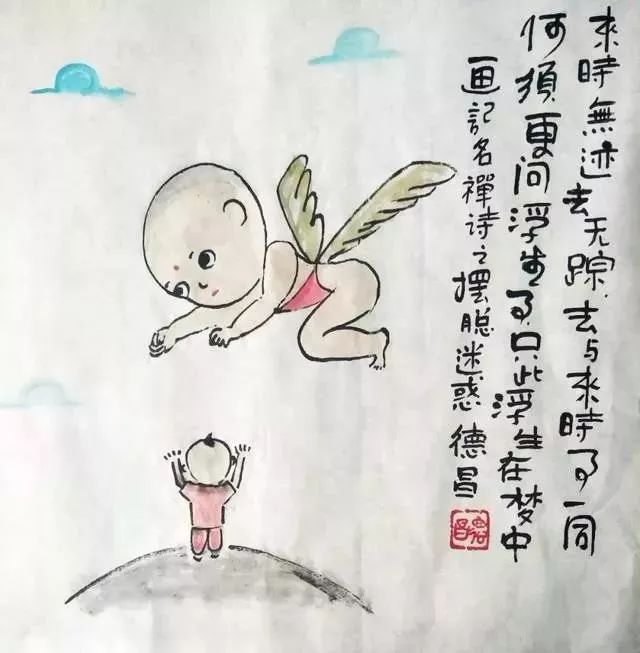 来時無迹去无踪.去与来時事一同
何須更问浮生事只此浮生在梦中
画記名禪诗之摆脱迷惑德昌